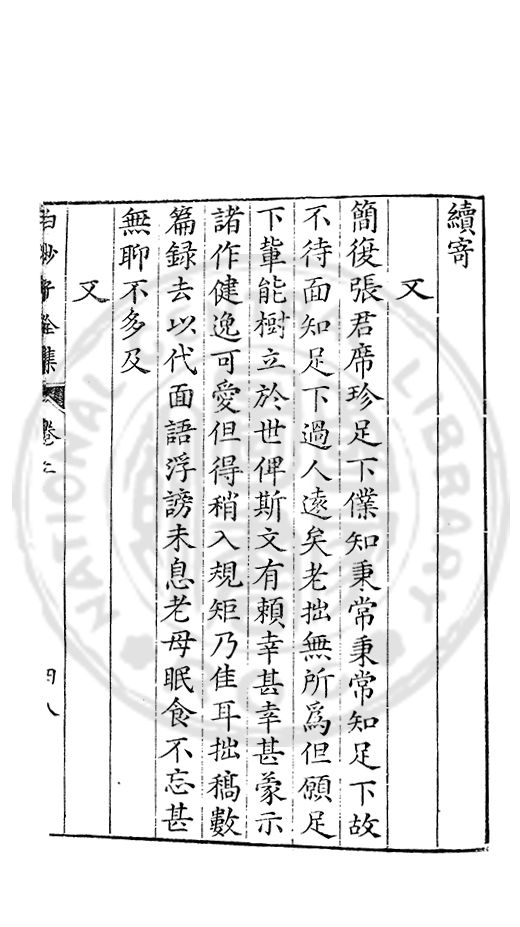 續寄
又
簡復張君席珍足下僕知秉常秉常知足下故
不待面知足下過人遠矣老拙無所爲但願足
下軰能樹立於世俾斯文有頼幸甚幸甚蒙示
諸作健逸可愛但得稍入規矩乃佳耳拙稿數
篇録去以代面語浮謗未息老母眠食不忘甚
無聊不多及
又
白沙子全集
卷之
四八
NATIONAL LIBRARY